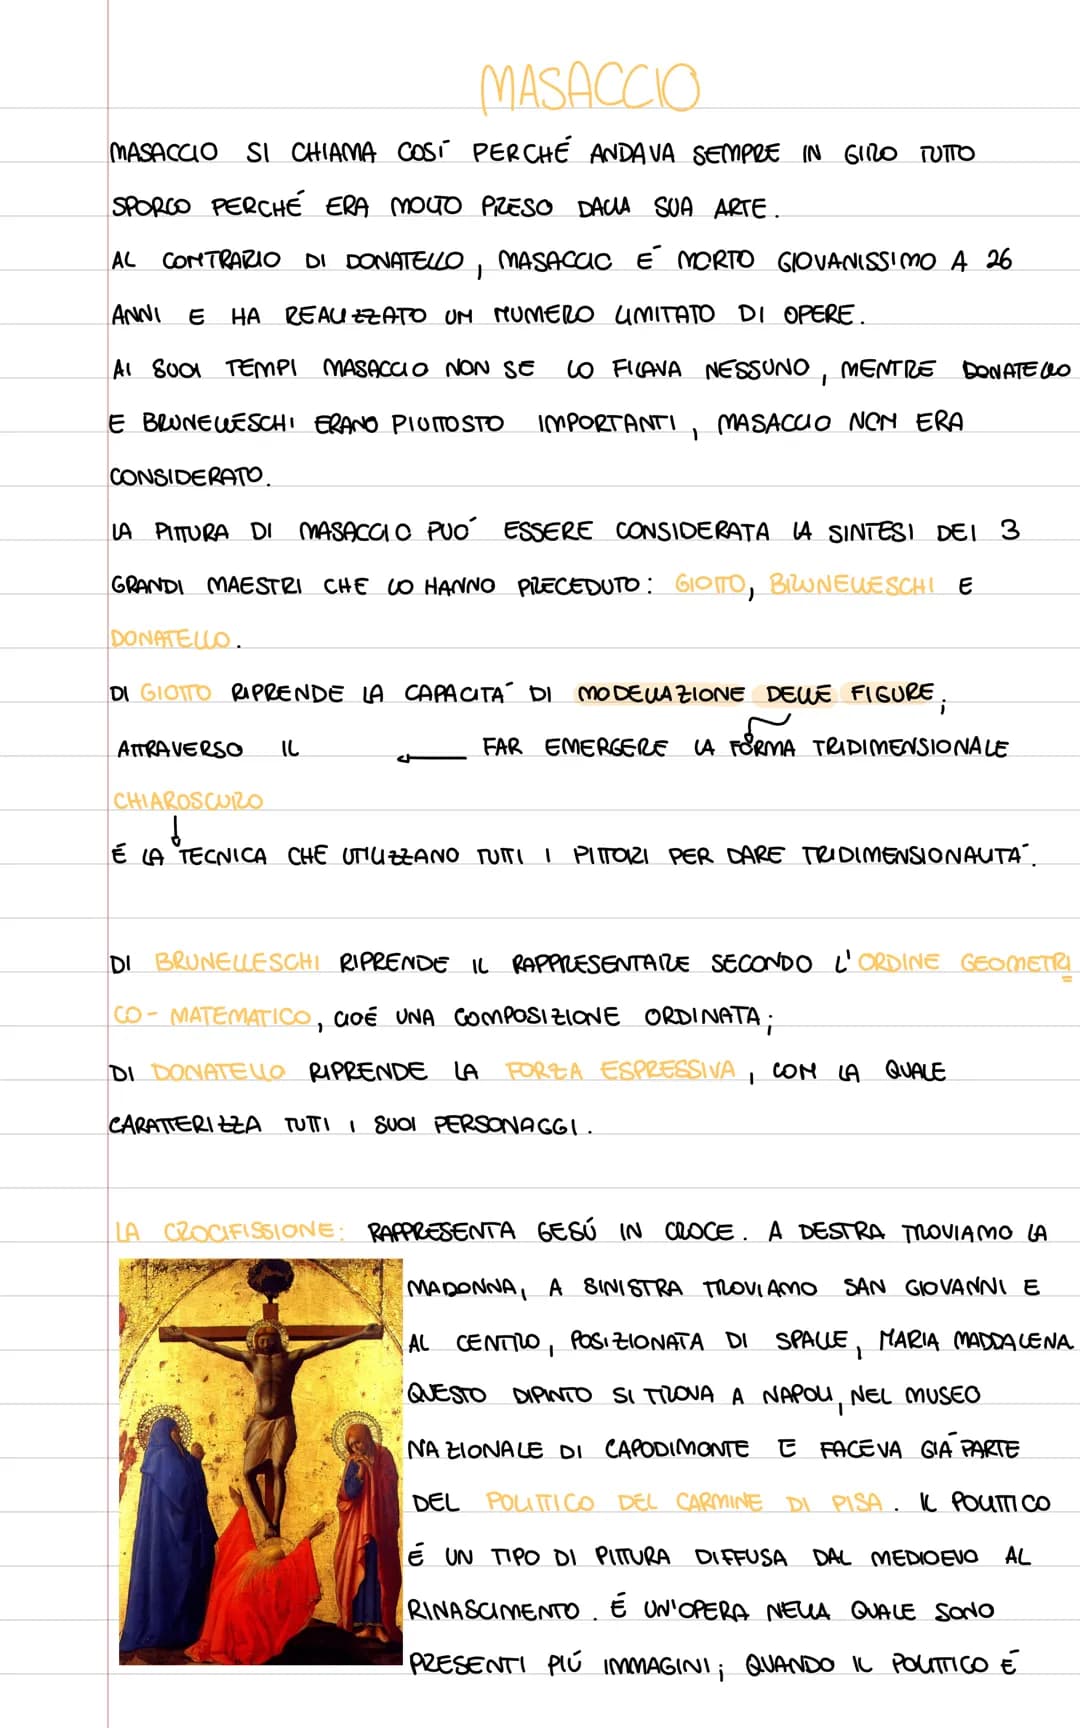 MASACCIO
MASACCIO SI CHIAMA COSÍ PERCHÉ ANDAVA SEMPRE IN GIRO TUTTO
SPORCO PERCHÉ ERA MOLTO PRESO DALLA SUA ARTE.
AL CONTRARIO DI DONATELLO, MASACCIO É MORTO GIOVANISSIMO A 26
ANNI E HA REALIZZATO UN NUMERO LIMITATO DI OPERE.
AI SUOI TEMPI MASACCIO NON SE LO FILAVA NESSUNO, MENTRE DONATELLO
E BRUNELLESCHI ERANO PIUTTOSTO IMPORTANTI, MASACCIO NON ERA
CONSIDERATO.
LA PITTURA DI MASACCIO PUÓ ESSERE CONSIDERATA LA SINTESI DEI 3
GRANDI MAESTRI CHE LO HANNO PRECEDUTO: GIOTTO, BRUNELLESCHI E
DONATELLO.
DI GIOTTO RIPRENDE LA CAPACITÁ DI MODELLAZIONE DELLE FIGURE,
ATTRAVERSO IL FAR EMERGERE LA FORMA TRIDIMENSIONALE
CHIAROSCURO
É LA TECNICA CHE UTILIZZANO TUTTI I PITTORI PER DARE TRIDIMENSIONALITÁ.
DI BRUNELLESCHI RIPRENDE IL RAPPRESENTARE SECONDO L'ORDINE GEOMETRI
CO-MATEMATICO, CIOÉ UNA COMPOSIZIONE ORDINATA;
DI DONATELLO RIPRENDE LA FORZA ESPRESSIVA, CON LA QUALE
CARATTERIZZA TUTTI I SUOI PERSONAGGI.
LA CROCIFISSIONE: RAPPRESENTA GESÚ IN CROCE. A DESTRA TROVIAMO LA
MADONNA, A SINISTRA TROVIAMO SAN GIOVANNI E
AL CENTRO, POSIZIONATA DI SPALLE, MARIA MADDALENA
QUESTO DIPINTO SI TROVA A NAPOLI, NEL MUSEO
NAZIONALE DI CAPODIMONTE E FACEVA GIÁ PARTE
DEL POLITTICO DEL CARMINE DI PISA. IL POLITTICO
É UN TIPO DI PITTURA DIFFUSA DAL MEDIOEVO AL
RINASCIMENTO. É UN'OPERA NELLA QUALE SONO
PRESENTI PIÚ IMMAGINI; QUANDO IL POLITTICO É